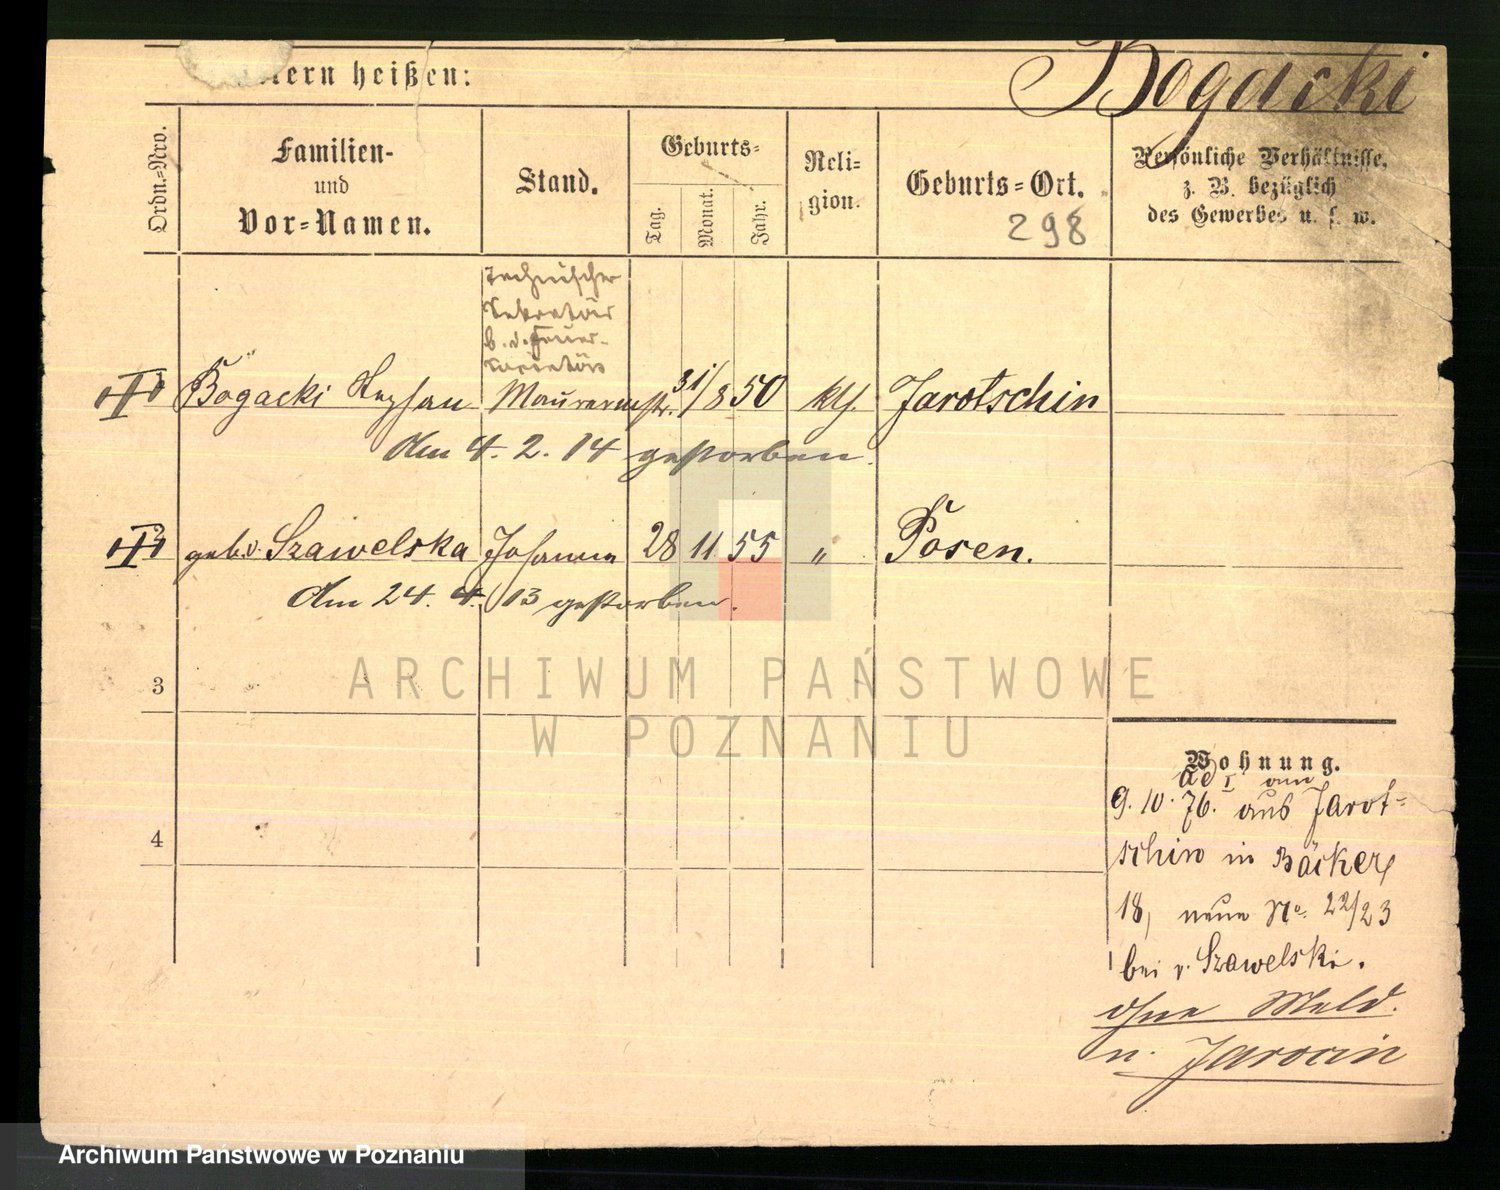 Bogacki
ltern heißen:
Ordn.-Nro.
Familien-
und
Vor-Namen.
Stand.
Geburts-
Tag.
Monat.
Jahr.
Reli-
gion.
Geburts-Ort.
298
Persönliche Verhältnisse,
z. B. bezüglich
des Gewerbes u. s. w.
Technischer
Sekretär
b. d. Feuer-
Societät
Bogacki Stephan Maurermstr. 31/8 50 kth. Jarotschin
Am 4. 2. 14 gestorben.
geb. v. Szawelska Johanna 28 11 55 " Posen.
Am 24. 4. 13 gestorben.
3
4
ARCHIWUM PAŃSTWOWE
W POZNANIU
Wohnung.
ad I am
9. 10. 76. aus Jarot-
schin in Bäcker
18, neue No. 22/23
bei v. Szawelski.
ohne Meld.
n. Jarocin
Archiwum Państwowe w Poznaniu